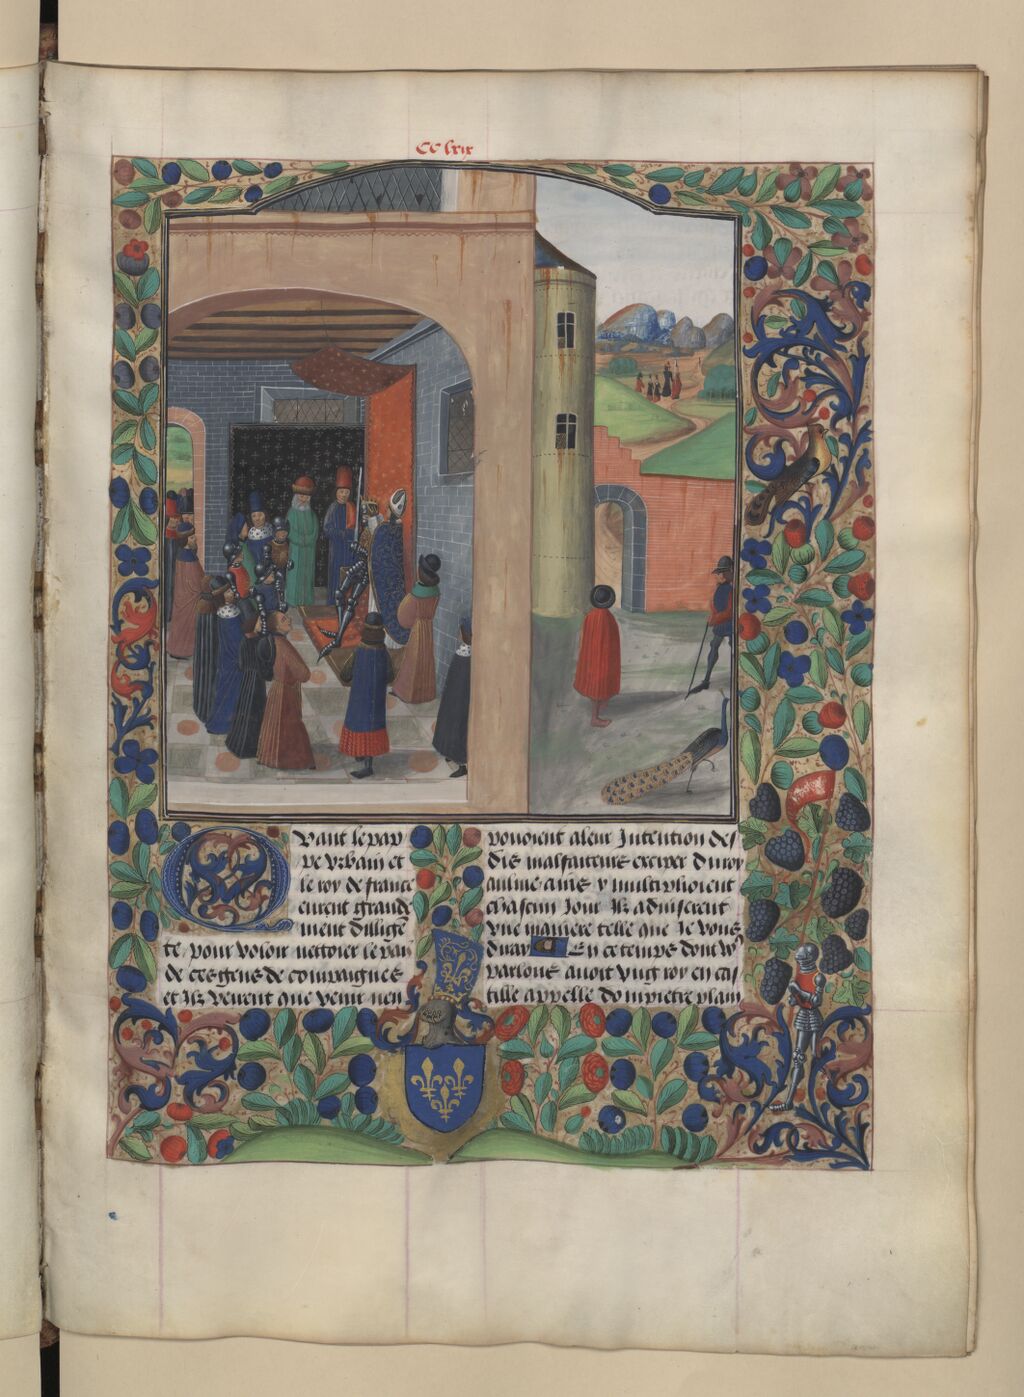 CC lxix
Quant le pap
pe vrbain et
le roy de france
eurent grande
ment dillige
te pour voloir nettoier le pais
de ces gens de compaignes
et Ilz veirent que point nen
pouoient a leur Intention des
dis malfaiteurs exciper du roy
aulme ains y multiplioient
chascun Jour Ilz aduiserent
vne maniere telle que Je vous
diray En ce temps dont Je
parlons auoit vng roy en cas
tille appelle dompietre plain